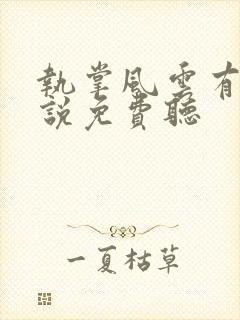 執掌風雲有
說免費聽
一夏枯草